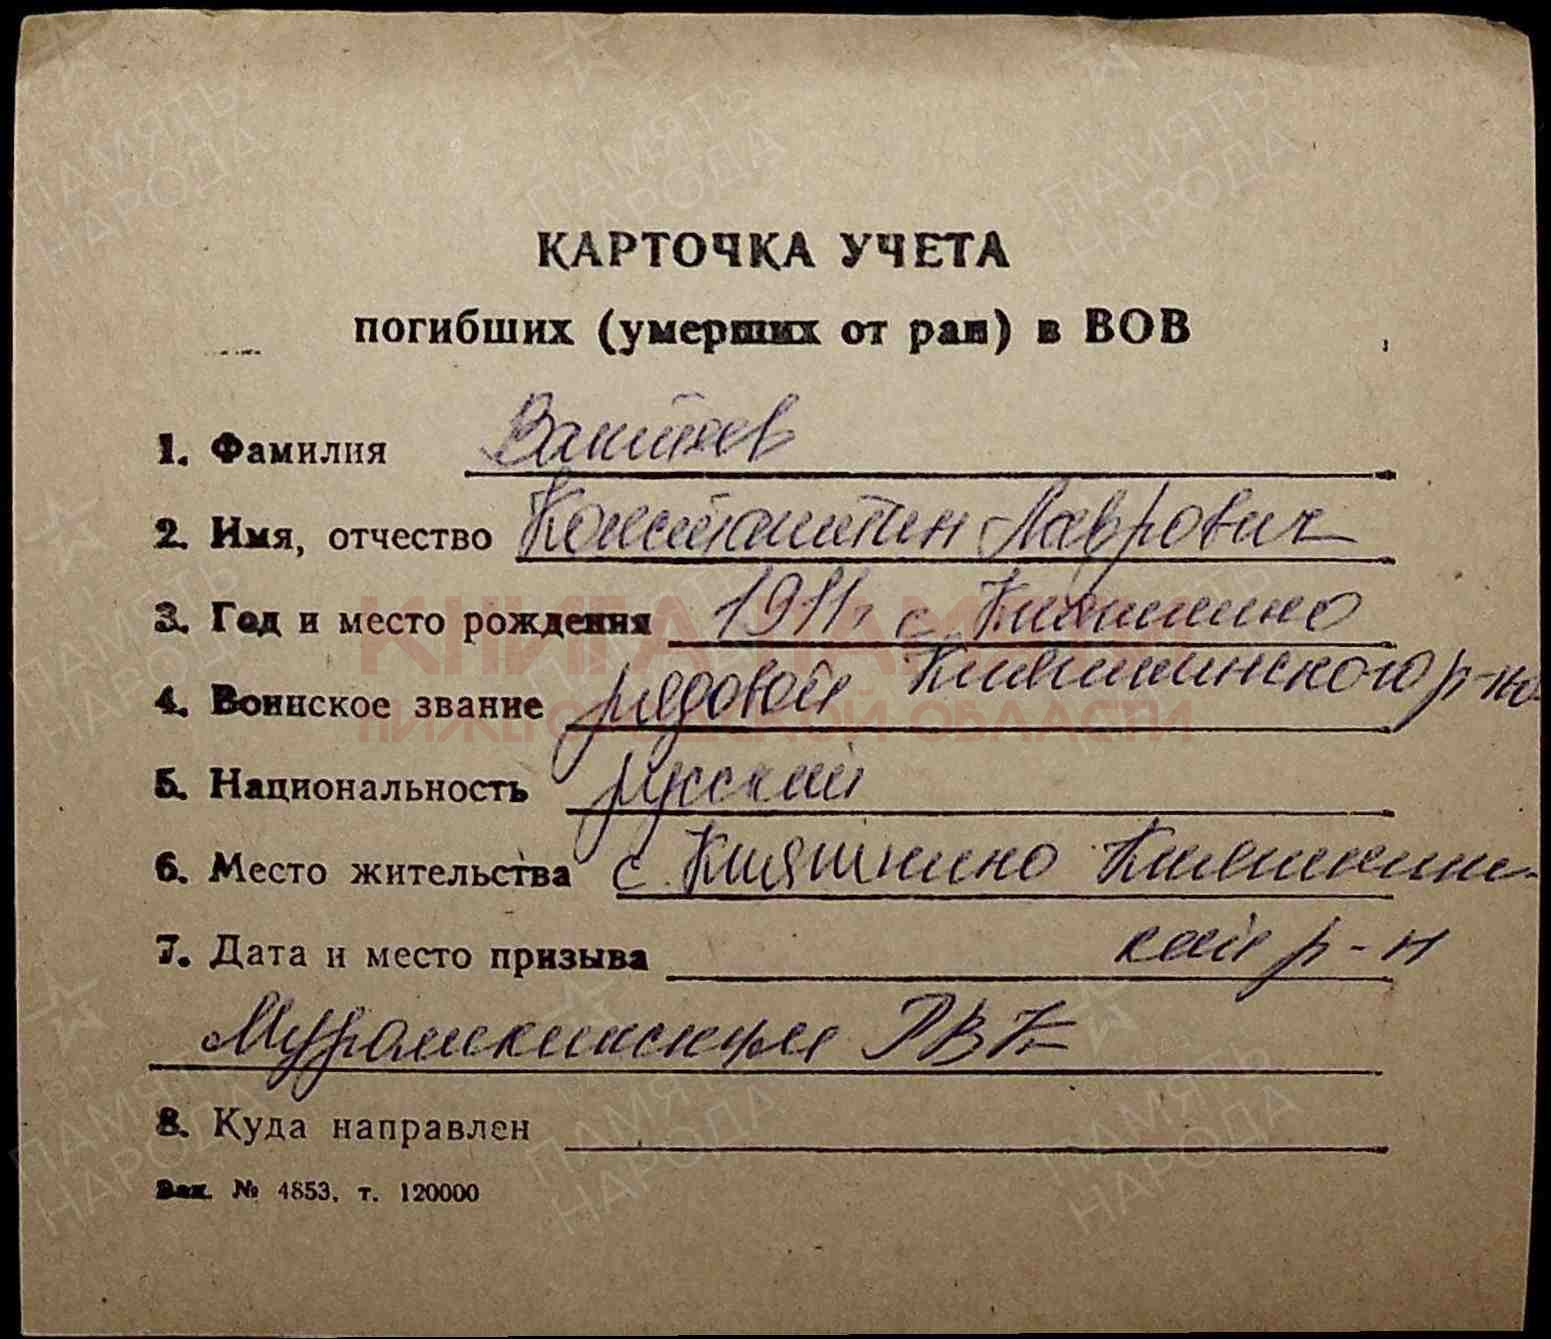 КАРТОЧКА УЧЕТА
погибших (умерших от ран) в ВОВ
1. Фамилия Ванеев
2. Имя, отчество Константин Лаврович
3. Год и место рождения 1911г с. Княгинино
4. Воинское звание рядовой Княгининского р-на
5. Национальность русский
6. Место жительства с. Княгинино Княгинин-
7. Дата и место призыва ский р-н
РВК
8. Куда направлен
Зак. № 4853, т. 120000
КНИГА ПАМЯТИ
НИЖЕГОРОДСКОЙ ОБЛАСТИ
ПАМЯТЬ
НАРОДА